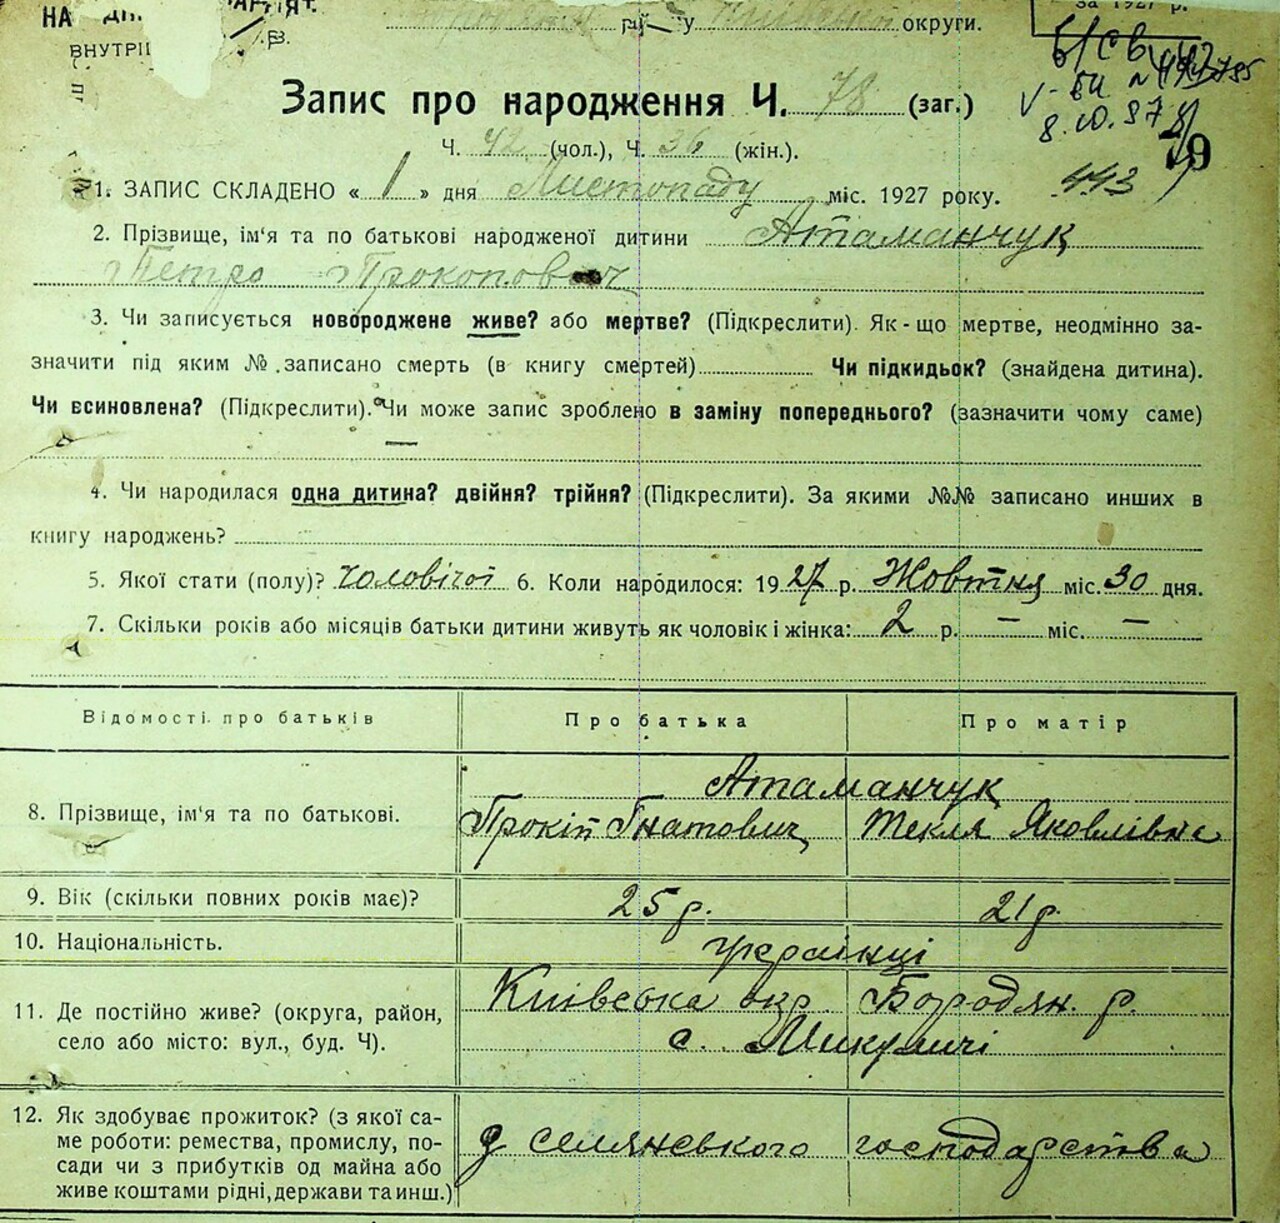 НА
ВНУТРІ
округи.
за 1927 р.
Запис про народження Ч. 78 (заг.)
8.10.87
Ч. 42 (чол.), Ч. 36 (жін.).
1. ЗАПИС СКЛАДЕНО « 1 » дня Листопаду міс. 1927 року.
443
2. Прізвище, ім'я та по батькові народженої дитини Атаманчук
Петро Прокопович
3. Чи записується новороджене живе? або мертве? (Підкреслити). Як-що мертве, неодмінно за-
значити під яким № записано смерть (в книгу смертей) Чи підкидьок? (знайдена дитина).
Чи всиновлена? (Підкреслити). Чи може запис зроблено в заміну попереднього? (зазначити чому саме)
—
4. Чи народилася одна дитина? двійня? трійня? (Підкреслити). За якими №№ записано инших в
книгу народжень?
5. Якої стати (полу)? чоловічої 6. Коли народилося: 1927 р. Жовтня міс. 30 дня.
7. Скільки років або місяців батьки дитини живуть як чоловік і жінка: 2 р. — міс. —
Відомості про батьків Про батька Про матір
Атаманчук
8. Прізвище, ім'я та по батькові. Прокіп Гнатович Текля Яковлівна
9. Вік (скільки повних років має)? 25 р. 21 р.
10. Національність. українці
11. Де постійно живе? (округа, район, Київська окр. Бородян. р.
село або місто: вул., буд. Ч). с. Микуличі
12. Як здобуває прожиток? (з якої са-
ме роботи: ремества, промислу, по- з селянського господарства
сади чи з прибутків од майна або
живе коштами рідні, держави та инш.)